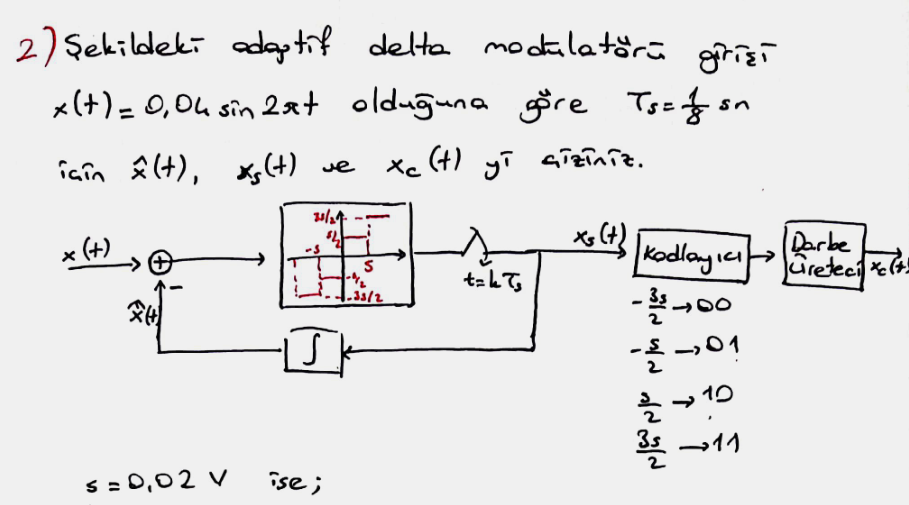 2) Şekildeki adaptif delta modülatörü girişi
x(t) = 0,04 sin 2πt olduğuna göre Ts = 1/8 sn
için x̂(t), xs(t) ve xc(t) yi çiziniz.
3s/2
s/2
-s
s
-s/2
-3s/2
x(t)
+
-
x̂(t)
∫
t=kTs
xs(t)
Kodlayıcı
Darbe
Üreteci
xc(t)
-3s/2 → 00
-s/2 → 01
s/2 → 10
3s/2 → 11
s = 0,02 V ise;